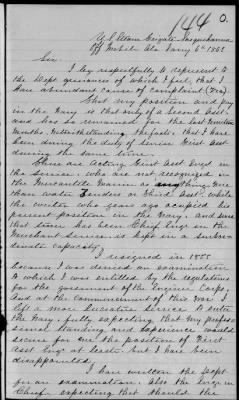 144 O.
U.S. Steam Frigate Susquehanna
Off Mobile Ala Jany 6th
Sir,
I beg respectfully to represent to
the Dept grievances of which I feel, that I
have abundant cause of complaint
That my position and pay
in the Navy is that only of a Second Asst.
and has so remained for the last
Months. Notwithstanding the fact, that I have
been doing the duty of Senior First Asst
during the same time.
There are Acting First Asst Engrs in
the Service, who are not recognized in
the Mercantile Marine as anything more
than Water Tenders or Third Assts. while
the writer years ago occupied his
present position in the Navy, and since
that time has been Chief Engr in the
Merchant Service is kept in a subor-
dinate capacity.
I resigned in 1855
because I was denied an examination
to which I was entitled by the regulations
for the government of the Engineer Corps,
And at the commencement of this War I
left a more lucrative Service to enter
the Navy, fully expecting that my profess
sional standing and experience would
secure for me the position of First
Asst Engr at least but I have been
disappointed.
I have written the Dept
for an examination. Also the Engr in
Chief expecting that should the